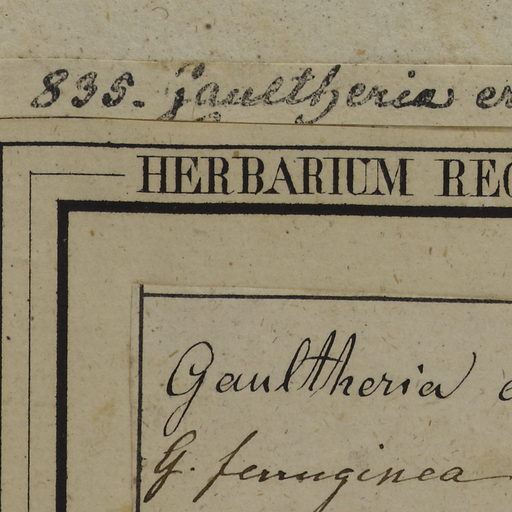 835. Gaultheria er
HERBARIUM REG
Gaultheria e
G. ferruginea